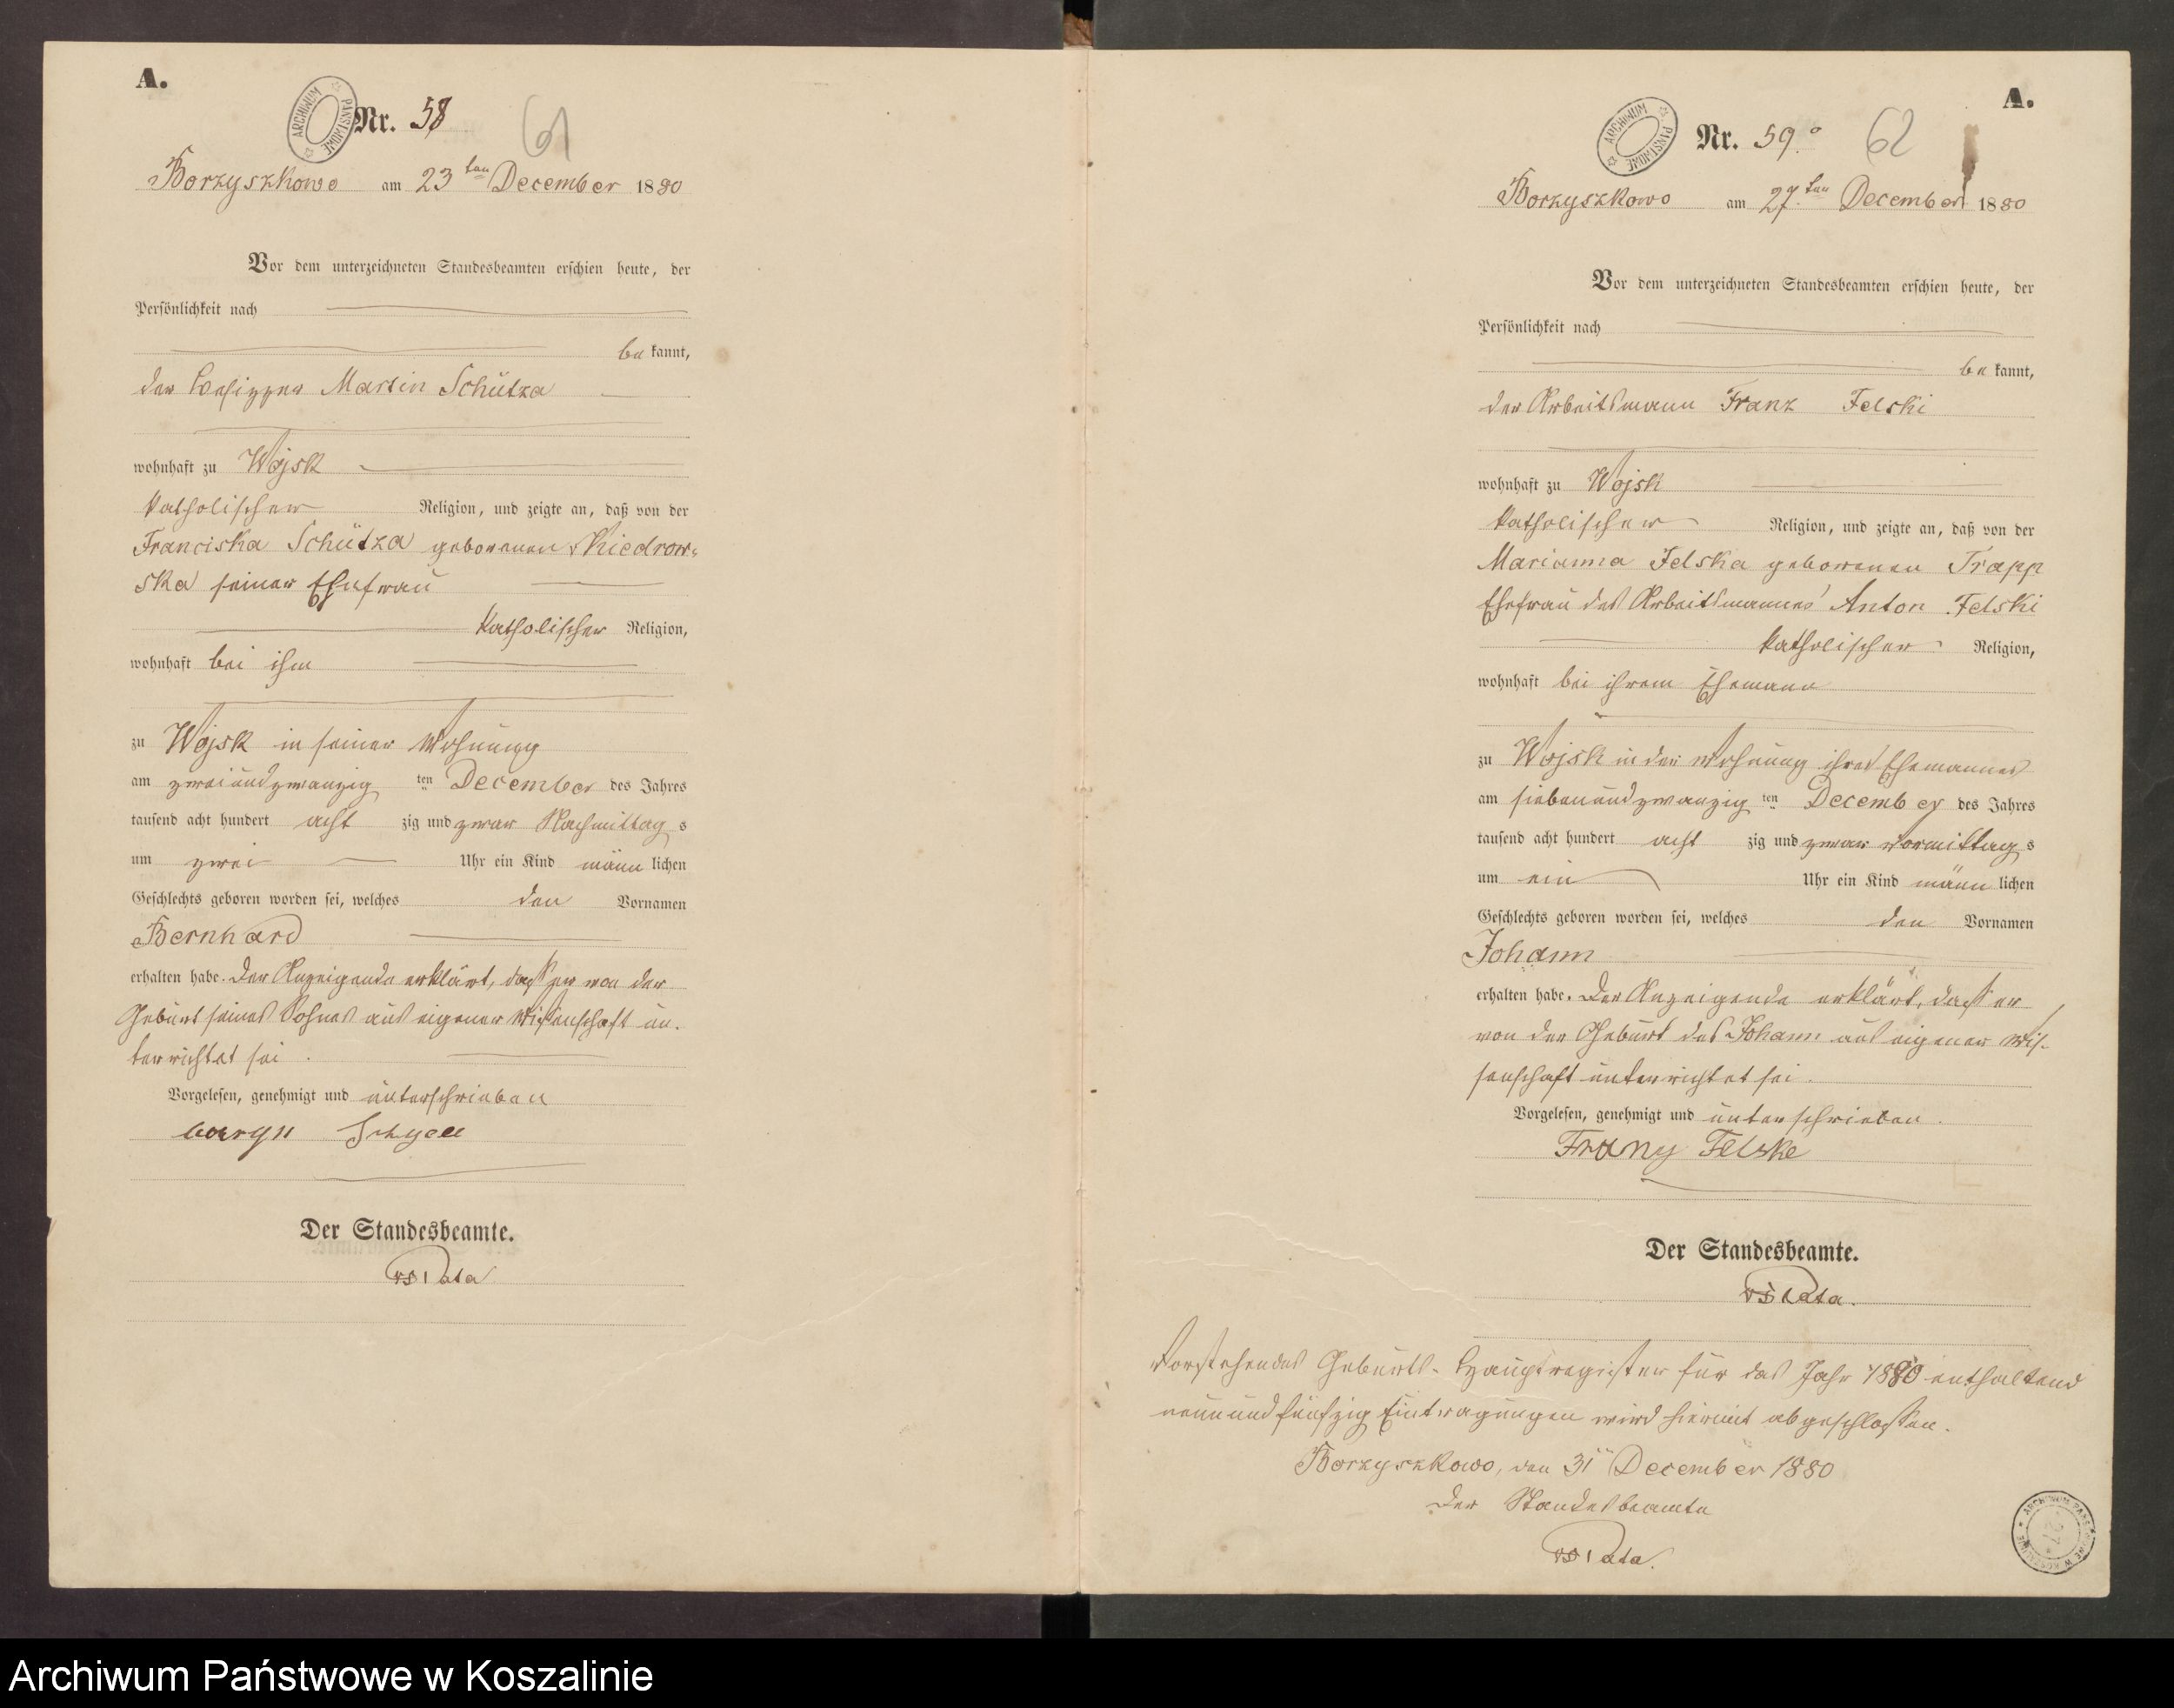 A.
Nr. 58
61
Borzyszkowo am 23ten December 1880
Vor dem unterzeichneten Standesbeamten erschien heute, der
Persönlichkeit nach
be kannt,
der Besitzer Martin Schütza
wohnhaft zu Wojsk
katholischer Religion, und zeigte an, daß von der
Franciska Schütza geborenen Kiedrow-
ska seiner Ehefrau
katholischer Religion,
wohnhaft bei ihm
zu Wojsk in seiner Wohnung
am zweiundzwanzig ten December des Jahres
tausend acht hundert acht zig und zwar Nachmittag s
um zwei Uhr ein Kind männ lichen
Geschlechts geboren worden sei, welches den Vornamen
Bernhard
erhalten habe. Der Anzeigende erklärt, daß er von der
Geburt seines Sohnes aus eigener Wissenschaft un-
terrichtet sei.
Vorgelesen, genehmigt und unterschrieben
Der Standesbeamte.
A.
Nr. 59.
62
Borzyszkowo am 27ten December 1880
Vor dem unterzeichneten Standesbeamten erschien heute, der
Persönlichkeit nach
be kannt,
der Arbeitsmann Franz Felski
wohnhaft zu Wojsk
katholischer Religion, und zeigte an, daß von der
Marianna Felska geborenen Trapp
Ehefrau des Arbeitsmannes Anton Felski
katholischer Religion,
wohnhaft bei ihrem Ehemann
zu Wojsk in der Wohnung ihres Ehemannes
am siebenundzwanzig ten December des Jahres
tausend acht hundert acht zig und zwar Vormittag s
um ein Uhr ein Kind männ lichen
Geschlechts geboren worden sei, welches den Vornamen
Johann
erhalten habe. Der Anzeigende erklärt, daß er
von der Geburt des Johann aus eigener Wis-
senschaft unterrichtet sei.
Vorgelesen, genehmigt und unterschrieben.
Franz Felske
Der Standesbeamte.
Vorstehendes Geburts-Hauptregister für das Jahr 1880 enthaltend
neunundfünfzig Eintragungen wird hiermit abgeschlossen.
Borzyszkowo, den 31 December 1880
Der Standesbeamte
ARCHIWUM PAŃSTWOWE
ARCHIWUM PAŃSTWOWE
ARCHIWUM PAŃSTWOWE W KOSZALINIE
Archiwum Państwowe w Koszalinie